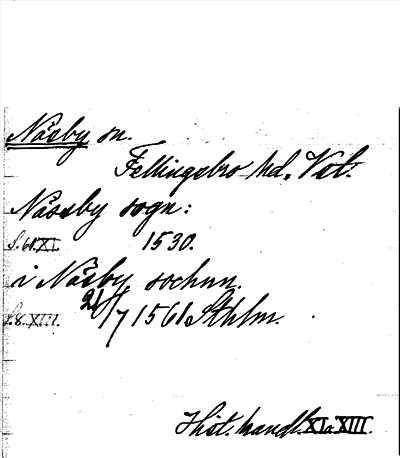 Näsby sn.
Fellingsbro hd, Vstl.
Näsby sogn:
S. 61. XI. 1530.
i Näsby sochnn.
S. 8. XIII. 21/7 1561 Sthlm.
Hist. handl. XI o XIII.